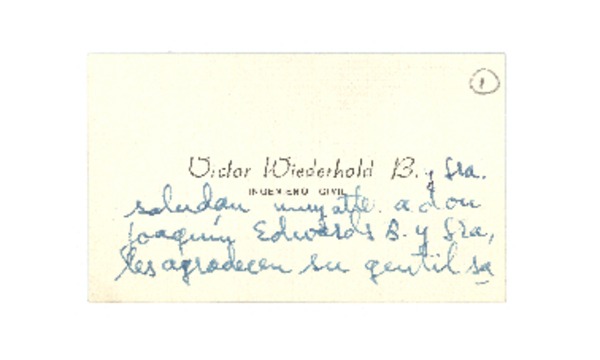 1
Victor Wiederhold B. y Sra.
INGENIERO CIVIL
saludan muy atte. a don
Joaquín Edwards B. y Sra,
les agradecen su gentil sa